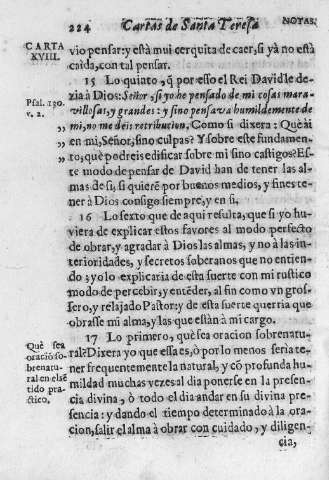 224 Cartas de Santa Teresa NOTAS.
CARTA
XVIII.
vio pensar: y està mui cerquita de caer, si yà no està
caìda, con tal pensar.
15 Lo quinto, q̃ por esso el Rei David le de-
zia à Dios: Señor, si yo he pensado de mi cosas mara-
Psal. 130.
v. 2.
villosas, y grandes: y sino pensava humildemente de
,, mi, no me deis retribution. Como si dixera: Què ài
,, en mi, Señor, sino culpas? Y sobre este fundamen-
,, to, què podreis edificar sobre mi sino castigos? Es-
te modo de pensar de David han de tener las al-
mas de sì, si quierẽ por buenos medios, y fines te-
ner à Dios consigo siempre, y en sì.
16 Lo sexto que de aqui resulta, que si yo hu-
viera de explicar estos favores al modo perfecto
de obrar, y agradar à Dios las almas, y no à las in-
terioridades, y secretos soberanos que no entien-
do; yo lo explicaria de esta suerte con mi rustico
modo de percebir, y entẽder, al fin como vn gros-
sero, y relajado Pastor: y de esta suerte querria que
obrasse mi alma, y las que estàn à mi cargo.
17 Lo primero, què sea oracion sobrenatu-
Què sea
oraciò so-
brenatu-
ral en el sẽ
tido pra-
ctico.
ral? Dixera yo que essa es, ò por lo menos seria te-
ner frequentemente la natural, y cõ profunda hu-
mildad muchas vezes al dia ponerse en la presen-
cia divina, ò todo el dia andar en su divina pre-
sencia: y dando el tiempo determinado à la ora-
cion, salir el alma à obrar con cuidado, y diligen-
cia,